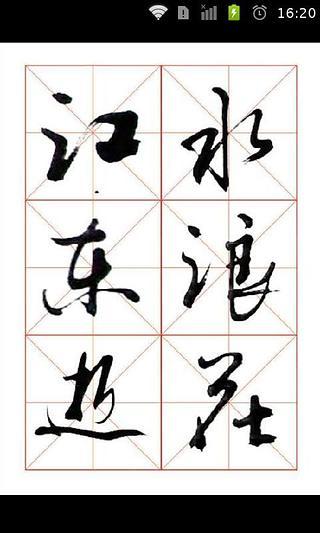 16:20
江东逝
水浪花